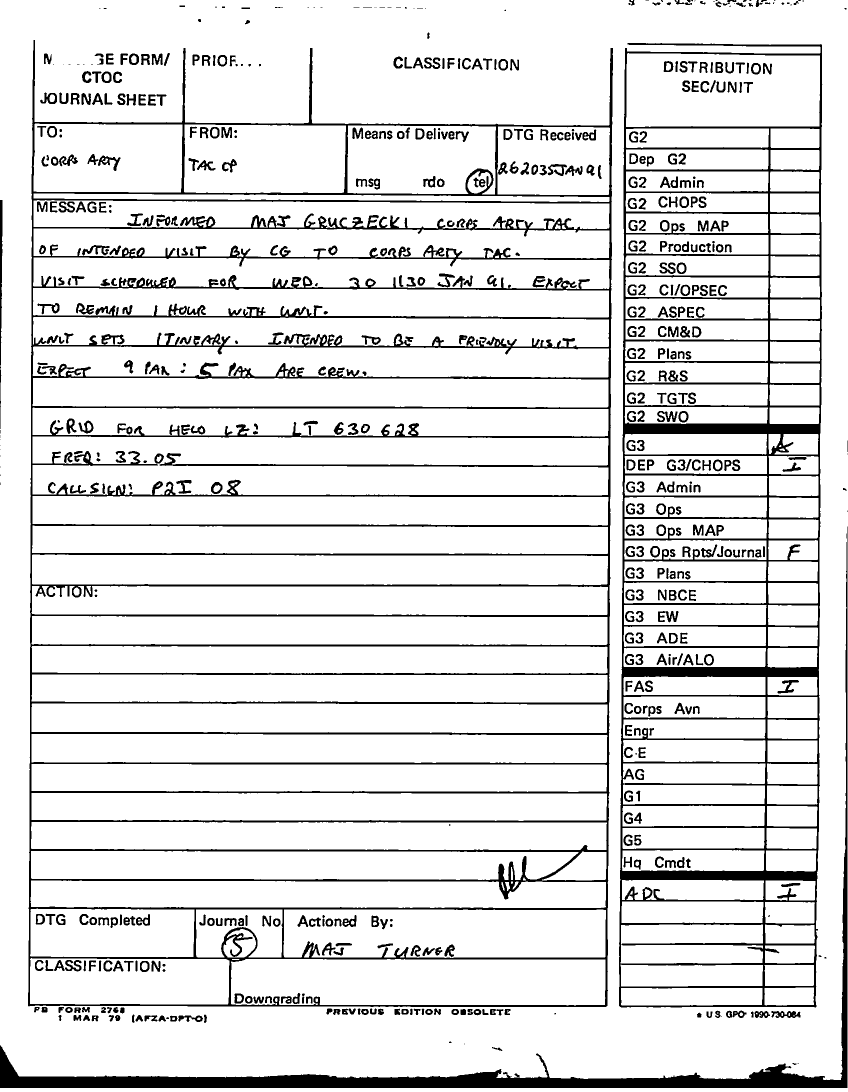 FORM/
CTOC
JOURNAL SHEET
CLASSIFICATION
DISTRIBUTION
SEC/UNIT
TO:
CORPS ARTY
FROM:
TAC CP
Means of Delivery
msg rdo tel
DTG Received
262035JAN91
MESSAGE:
INFORMED MAJ GRUCZECKI, CORPS ARTY TAC,
OF INTENDED VISIT BY CG TO CORPS ARTY TAC.
VISIT SCHEDULED FOR WED. 30 1130 JAN 91. EXPECT
TO REMAIN 1 HOUR WITH UNIT.
UNIT SETS ITINEARY. INTENDED TO BE A FRIENDLY VISIT.
EXPECT 9 PAX: 5 PAX ARE CREW.
GRID FOR HELO LZ: LT 630 628
FREQ: 33.05
CALLSIGN: P2I 08
ACTION:
DTG Completed
Journal No.
Actioned By:
MAJ TURNER
CLASSIFICATION:
Downgrading
FB FORM 2768
1 MAR 79 (AFZA-DPT-O)
PREVIOUS EDITION OBSOLETE
G2
Dep G2
G2 Admin
G2 CHOPS
G2 Ops MAP
G2 Production
G2 SSO
G2 CI/OPSEC
G2 ASPEC
G2 CM&D
G2 Plans
G2 R&S
G2 TGTS
G2 SWO
G3 A
DEP G3/CHOPS I
G3 Admin
G3 Ops
G3 Ops MAP
G3 Ops Rpts/Journal F
G3 Plans
G3 NBCE
G3 EW
G3 ADE
G3 Air/ALO
FAS I
Corps Avn
Engr
C-E
AG
G1
G4
G5
Hq Cmdt
ADC I
U.S. GPO: 1990-730-084